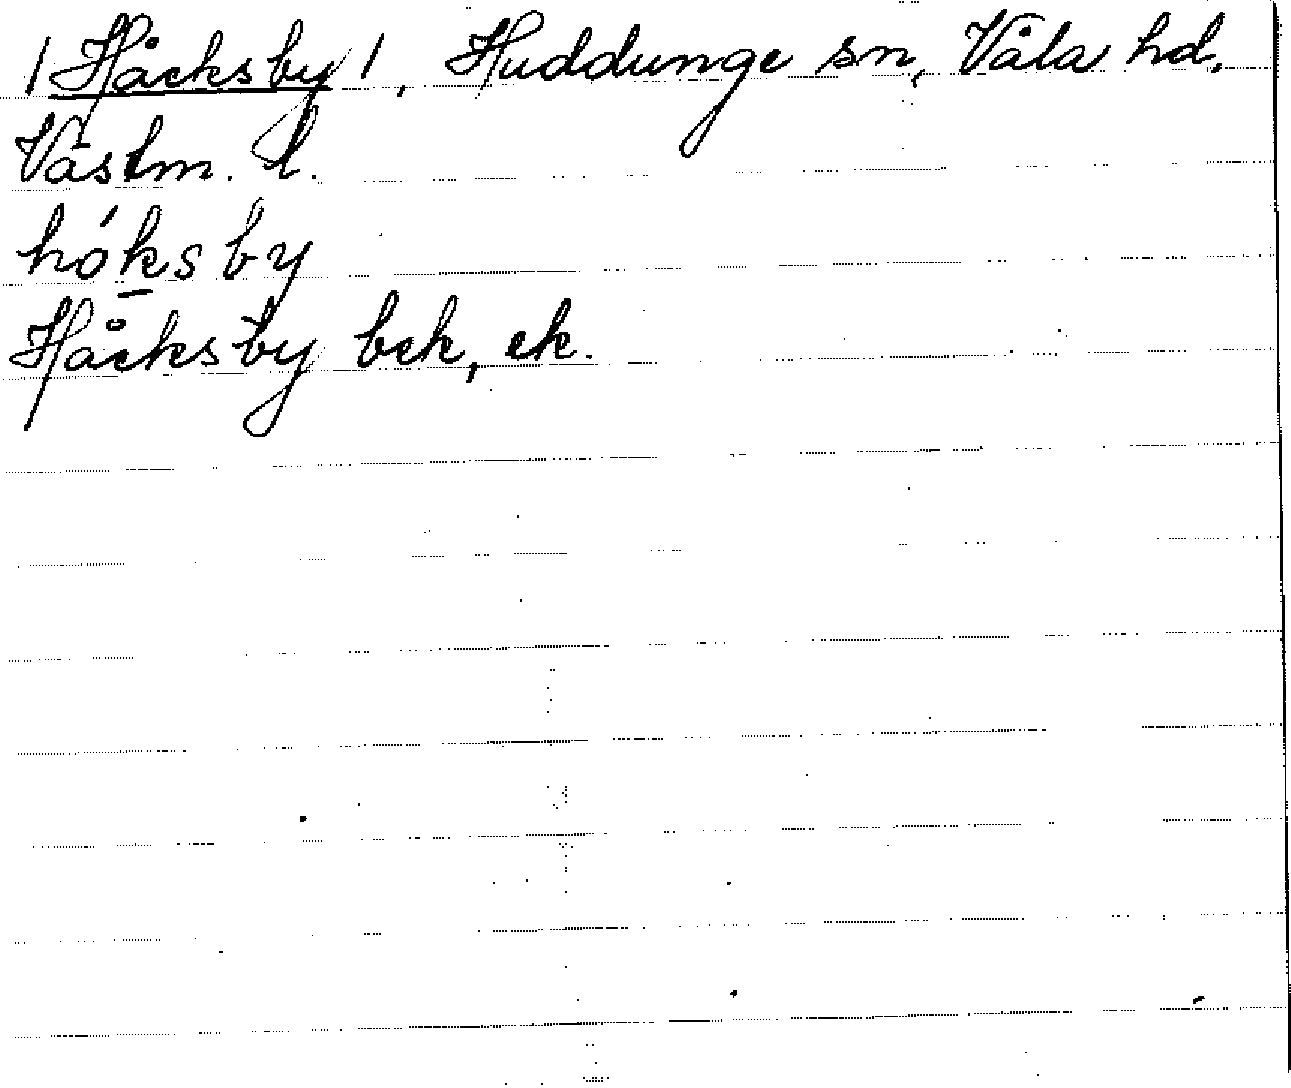 /Håcksby/, Huddunge sn, Våla hd.
Västm. l.
hó̱ksby
Håcksby bek, ek.